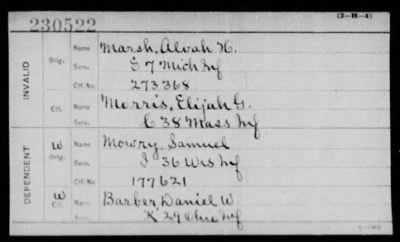 230522 (3-H-4)
INVALID
Orig. Name Marsh, Alvah H.
Serv. E 7 Mich Inf
Ctf. No. 273368
Ctf. Name Morris, Elijah G.
Serv. C 38 Mass Inf
DEPENDENT
W Orig. Name Mowry, Samuel
Serv. I 36 Wis Inf
Ctf. No. 177621
W Ctf. Name Barber, Daniel W.
Serv. K 29 Inf